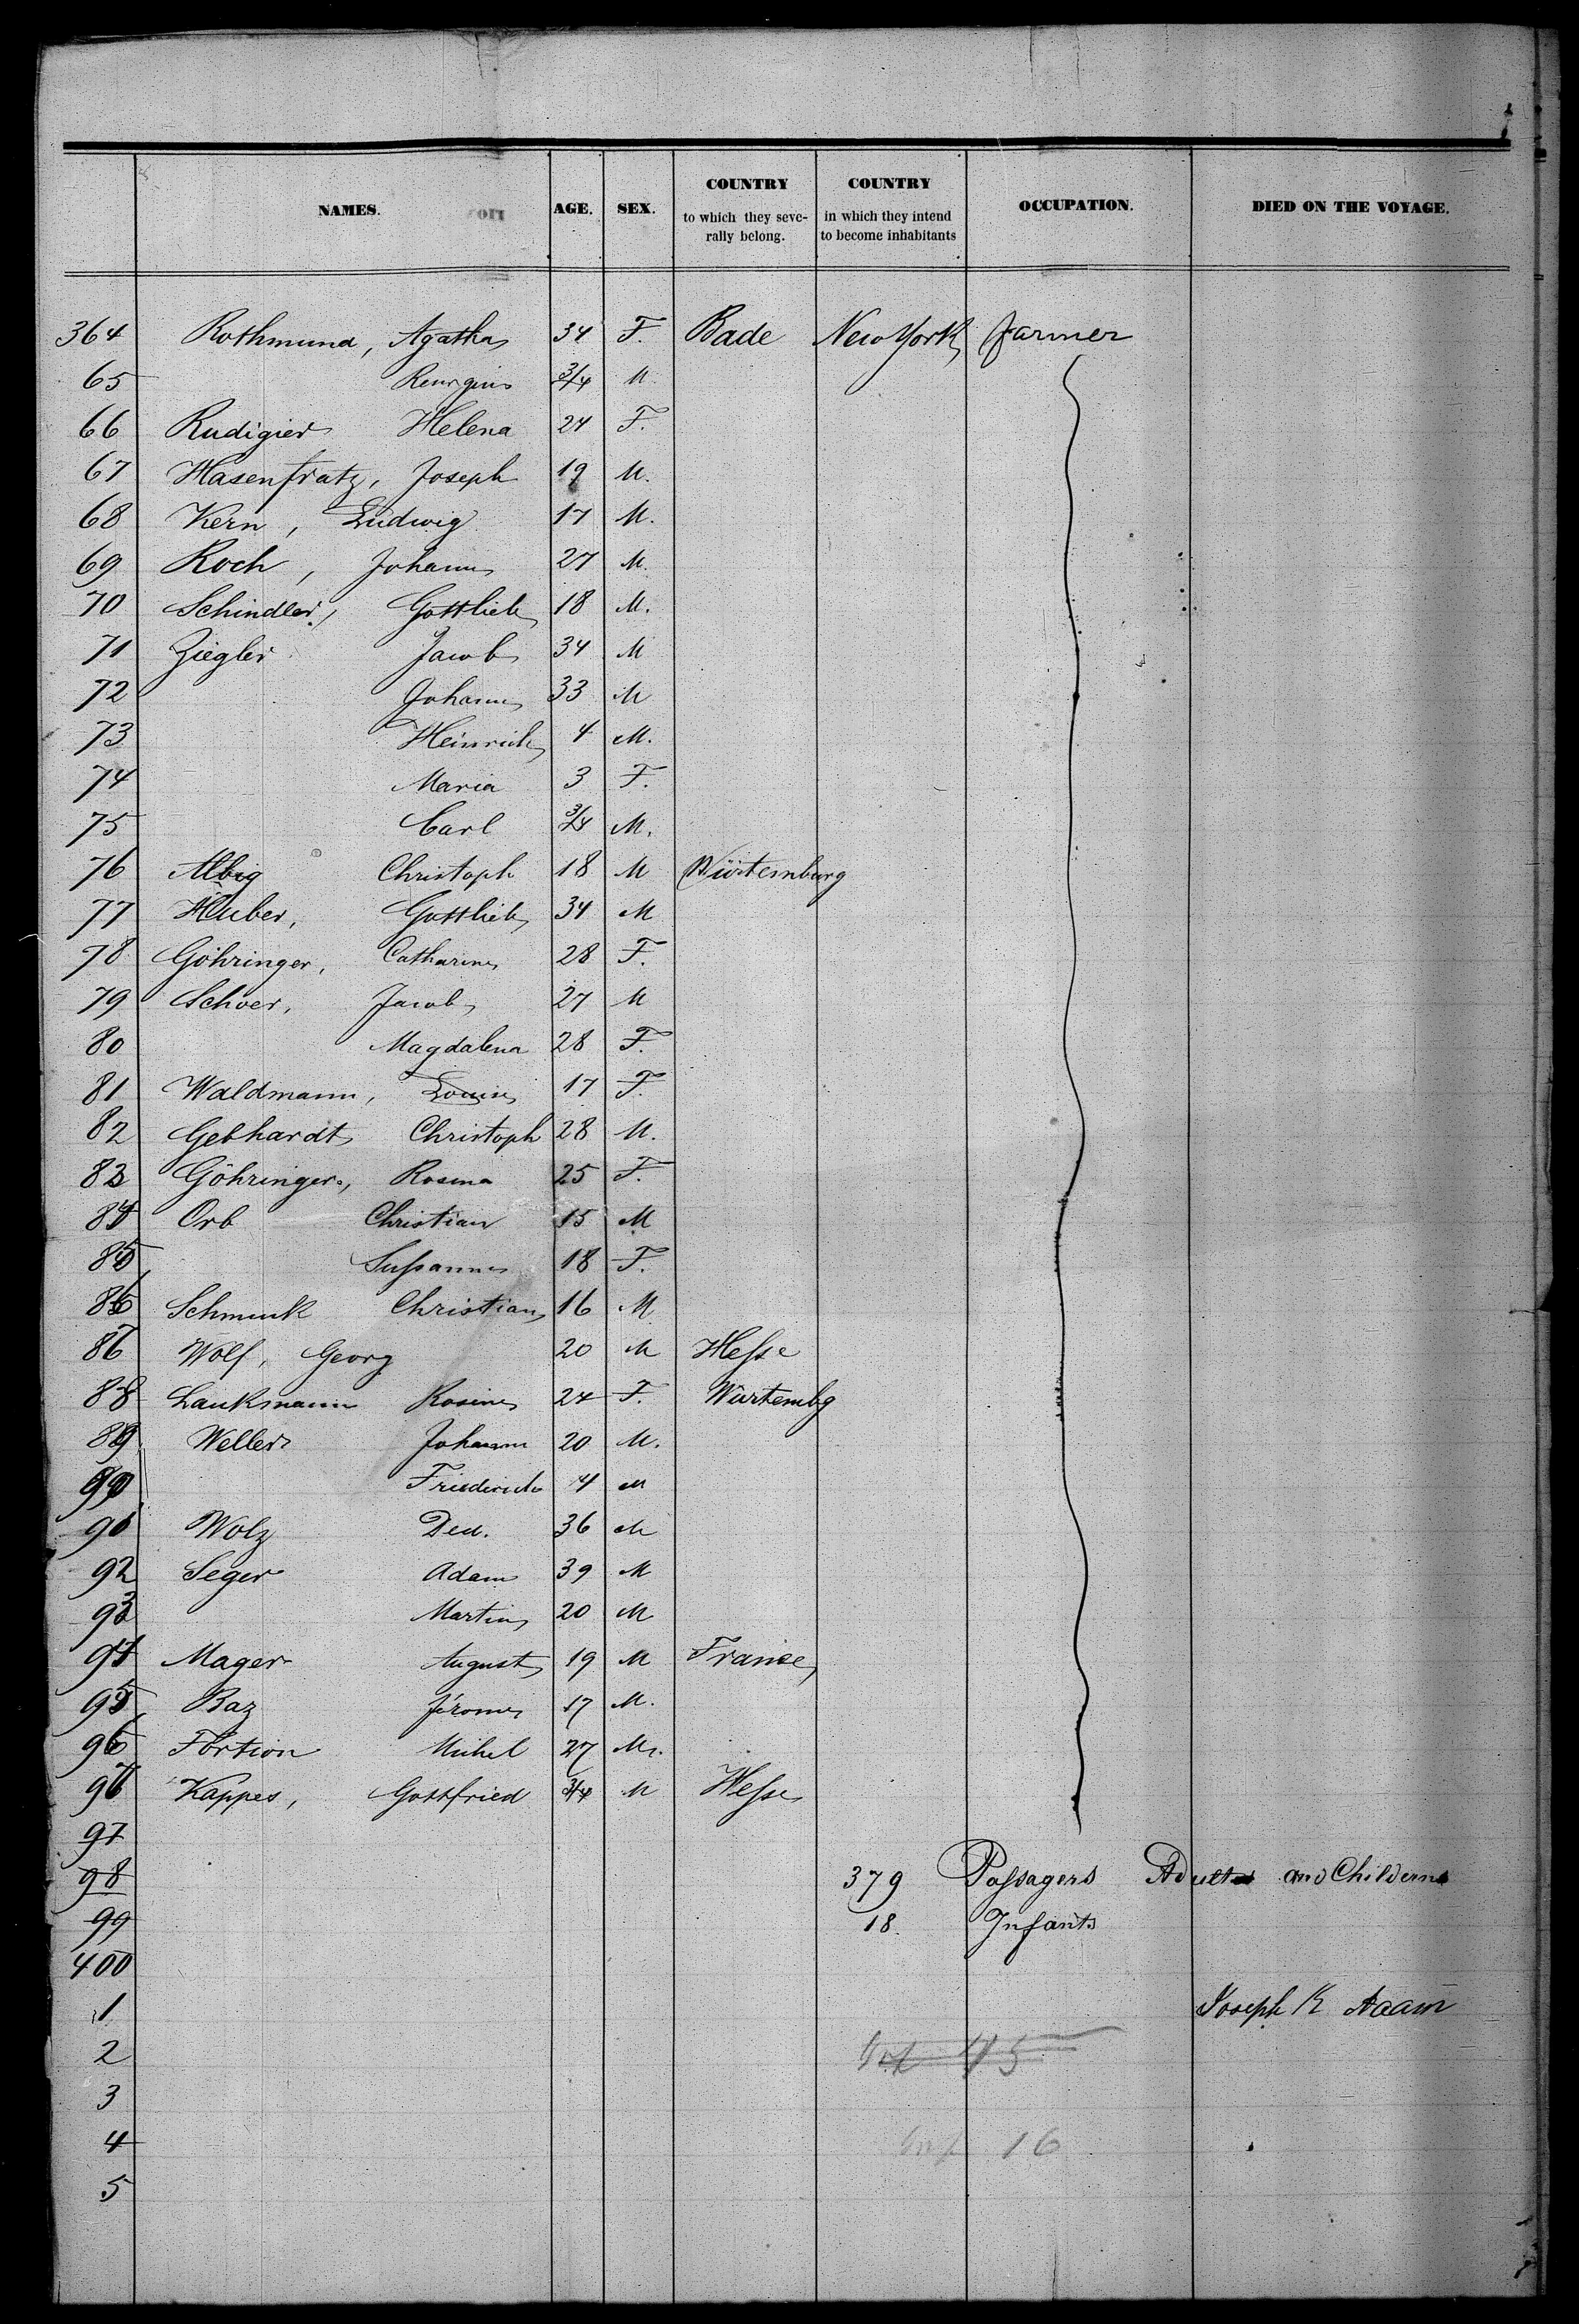 NAMES. AGE. SEX. COUNTRY to which they seve-rally belong. COUNTRY in which they intend to become inhabitants OCCUPATION. DIED ON THE VOYAGE.
364 Rothmund, Agatha 34 F. Bade New York farmer
65 Remigius 3/4 M
66 Rudigier Helena 24 F.
67 Hasenfratz, Joseph 19 M.
68 Kern, Ludwig 17 M.
69 Koch, Johann 27 M.
70 Schindler, Gottlieb 18 M.
71 Ziegler Jacob 34 M
72 Johann 33 M
73 Heinrich 4 M.
74 Maria 3 F.
75 Carl 3/4 M.
76 Albig Christoph 18 M Würtemburg
77 Huber, Gottlieb 34 M
78 Göhringer, Catharine 28 F.
79 Schoer, Jacob 27 M
80 Magdalena 28 F.
81 Waldmann, Louise 17 F.
82 Gebhardt Christoph 28 M.
83 Göhringer, Rosina 25 F.
84 Orb Christian 15 M
85 Sußanne 18 F.
86 Schmuk Christian 16 M
87 Wolf, Georg 20 M Hesse
88 Lauksmann Rosine 24 F. Würtembg
89 Weller Johann 20 M.
90 Friederich 4 M
91 Wolz 36 M
92 Seger Adam 39 M
93 Martin 20 M
94 Mager August 19 M France
95 Baz Jérome 17 M.
96 Fortion Michel 27 M.
97 Kappes, Gottfried 3/4 M Hesse
97
98 379 Passagers Adults and Childerns
99 18 Infants
400
1 Joseph K Adams
2 45
3
4 16
5